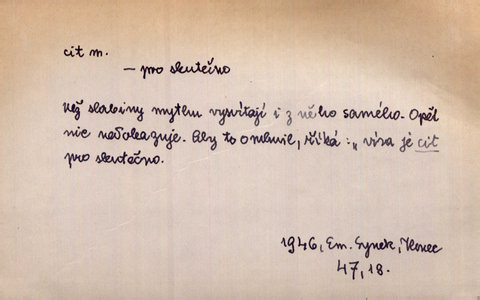 cit m.
— pro skutečno
Než slabiny mythu vysvítají i z něho samého. Opět
nic nedokazuje. Aby to omluvil, říká: „víra je cit
pro skutečno.
1946, Em. Synek, Konec
47, 18.